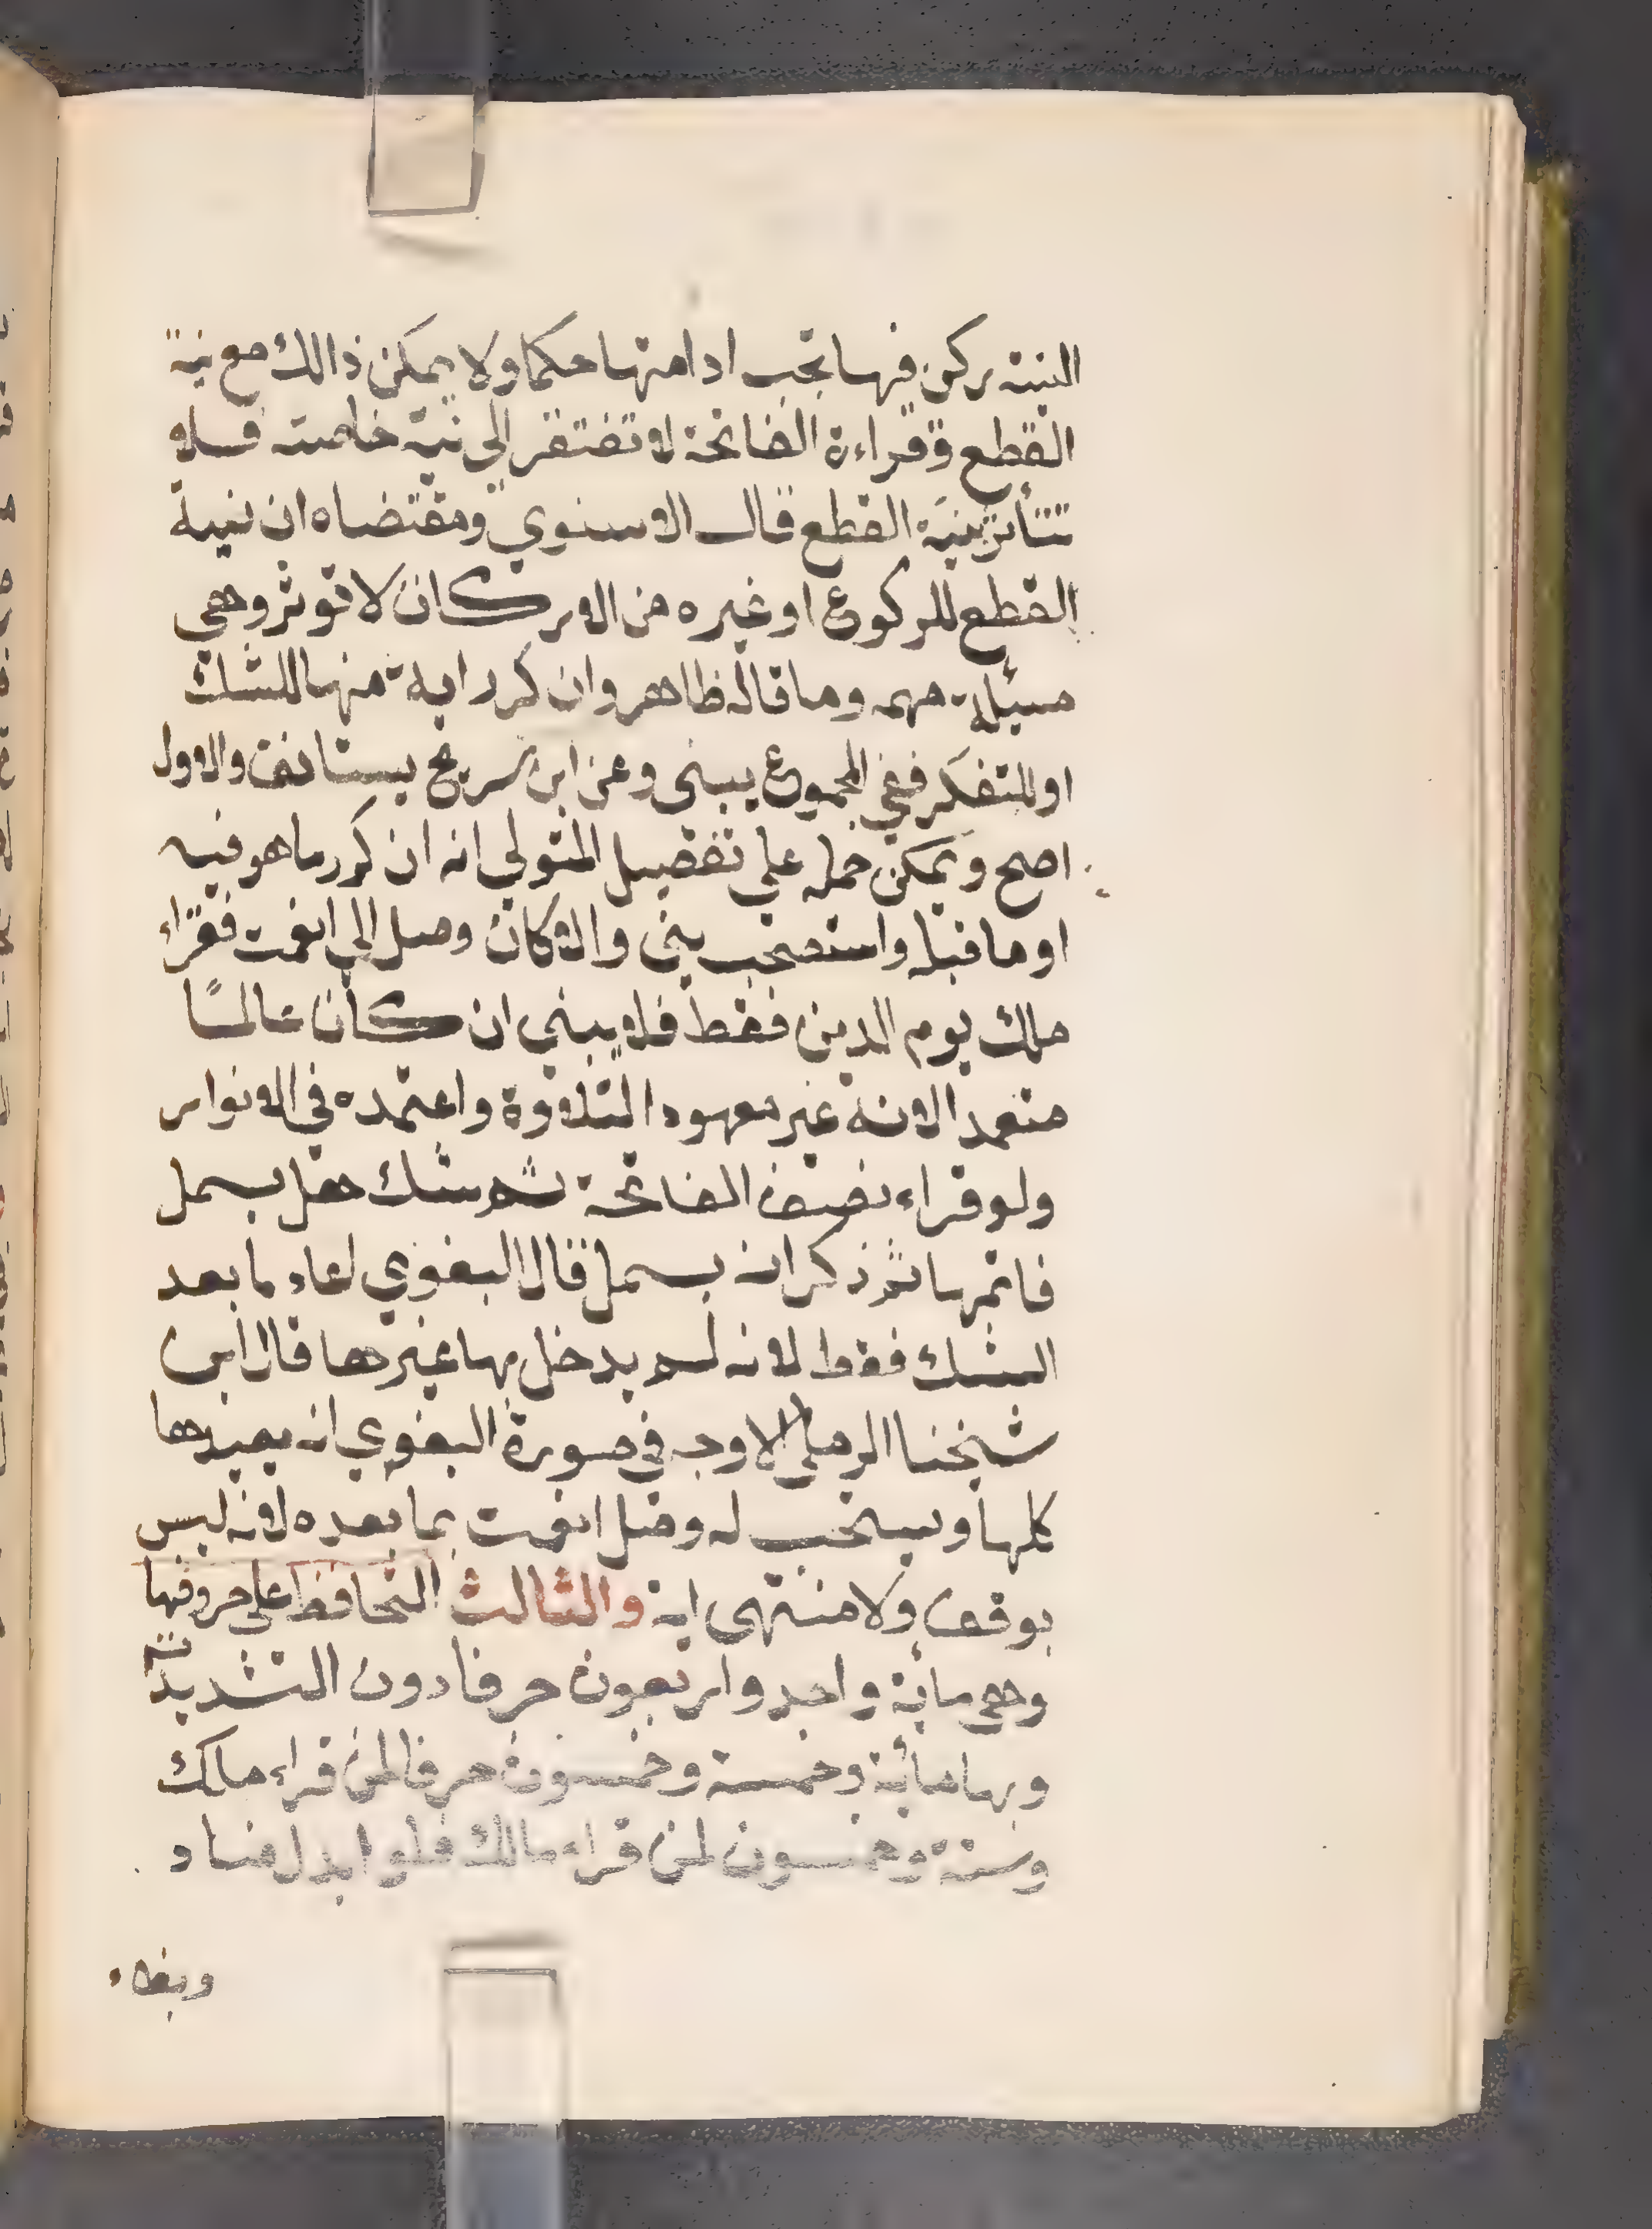 النية ركن فيها تجب ادامتها حكما ولا يمكن ذالك مع نية
القطع وقراءة الفاتحة لا تفتقر الى نية خاصة فلا
تتأثر بنية القطع قال الاسنوي ومقتضاه ان نية
القطع للركوع او غيره من الاركان لا تؤثر وهي
مسئلة مهمه وما قاله ظاهر وان كرر اية منها للشك
او للتفكر ففي المجموع يبنى وعن ابن سريج يستانف والاول
اصح ويمكن حمله على تفصيل المتولي انه ان كرر ما هو فيه
او ما قبله واستصحب بنى والا كان وصل الى انعمت فقراء
ملك يوم الدين فقط فلا يبني ان كان عالمًا
متعمدا لانه غير معهود التلاوة واعتمده في الانوار
ولو قراء نصف الفاتحة ثم شك هل بسمل
فاتمها ثم ذكر انه بسمل قال البغوي لعاد ما بعد
الشك فقط لانه لم يدخل بها غيرها قال ابن
شيخنا الرملي الاوجه في صورة البغوي انه يعيدها
كلها ويستحب له وصل انعمت بما بعده لانه ليس
بوقف ولا منتهى اية والثالث التحافظ على حروفها
وهي مائة واحد واربعون حرفا دون التشديد
وبها مائة وخمسة وخمسون حرفا لمن قراء ملك
وستة وخمسون لمن قراء مالك فلو ابدل ضادا
وبطاء